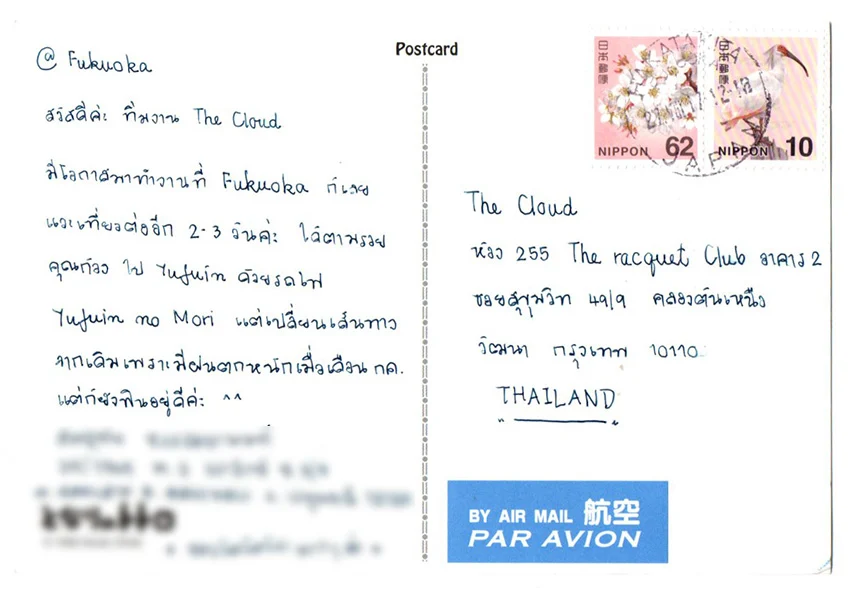 Postcard
@ Fukuoka
สวัสดีค่ะ ทีมงาน The Cloud
มีโอกาสมาทำงานที่ Fukuoka ก็เลย
แวะเที่ยวต่ออีก 2-3 วันค่ะ ได้ตามรอย
คุณก้อง ไป Yufuin ด้วยรถไฟ
Yufuin no Mori แต่เปลี่ยนเส้นทาง
จากเดิมเพราะมีฝนตกหนักเมื่อเดือน กค.
แต่ก็ยังฟินอยู่ดีค่ะ ^^
日本郵便
NIPPON 62
日本郵便
NIPPON 10
JAPAN
The Cloud
ห้อง 255 The racquet Club อาคาร 2
ซอยสุขุมวิท 49/9 คลองตันเหนือ
วัฒนา กรุงเทพ 10110
THAILAND
BY AIR MAIL 航空
PAR AVION